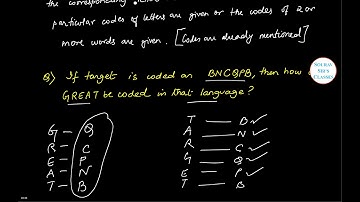 the corresponding
particular codes of letters are given or the codes of 2 or
more words are given. [Codes are already mentioned]
Q) If target is coded an BNCQPB, then how
GREAT be coded in that language?
G – Q T – B ✓
R – C A – N ✓
E – P R – C ✓
A – N G – Q ✓
T – B E – P ✓
T – B
SOURAV
SIR'S
CLASSES